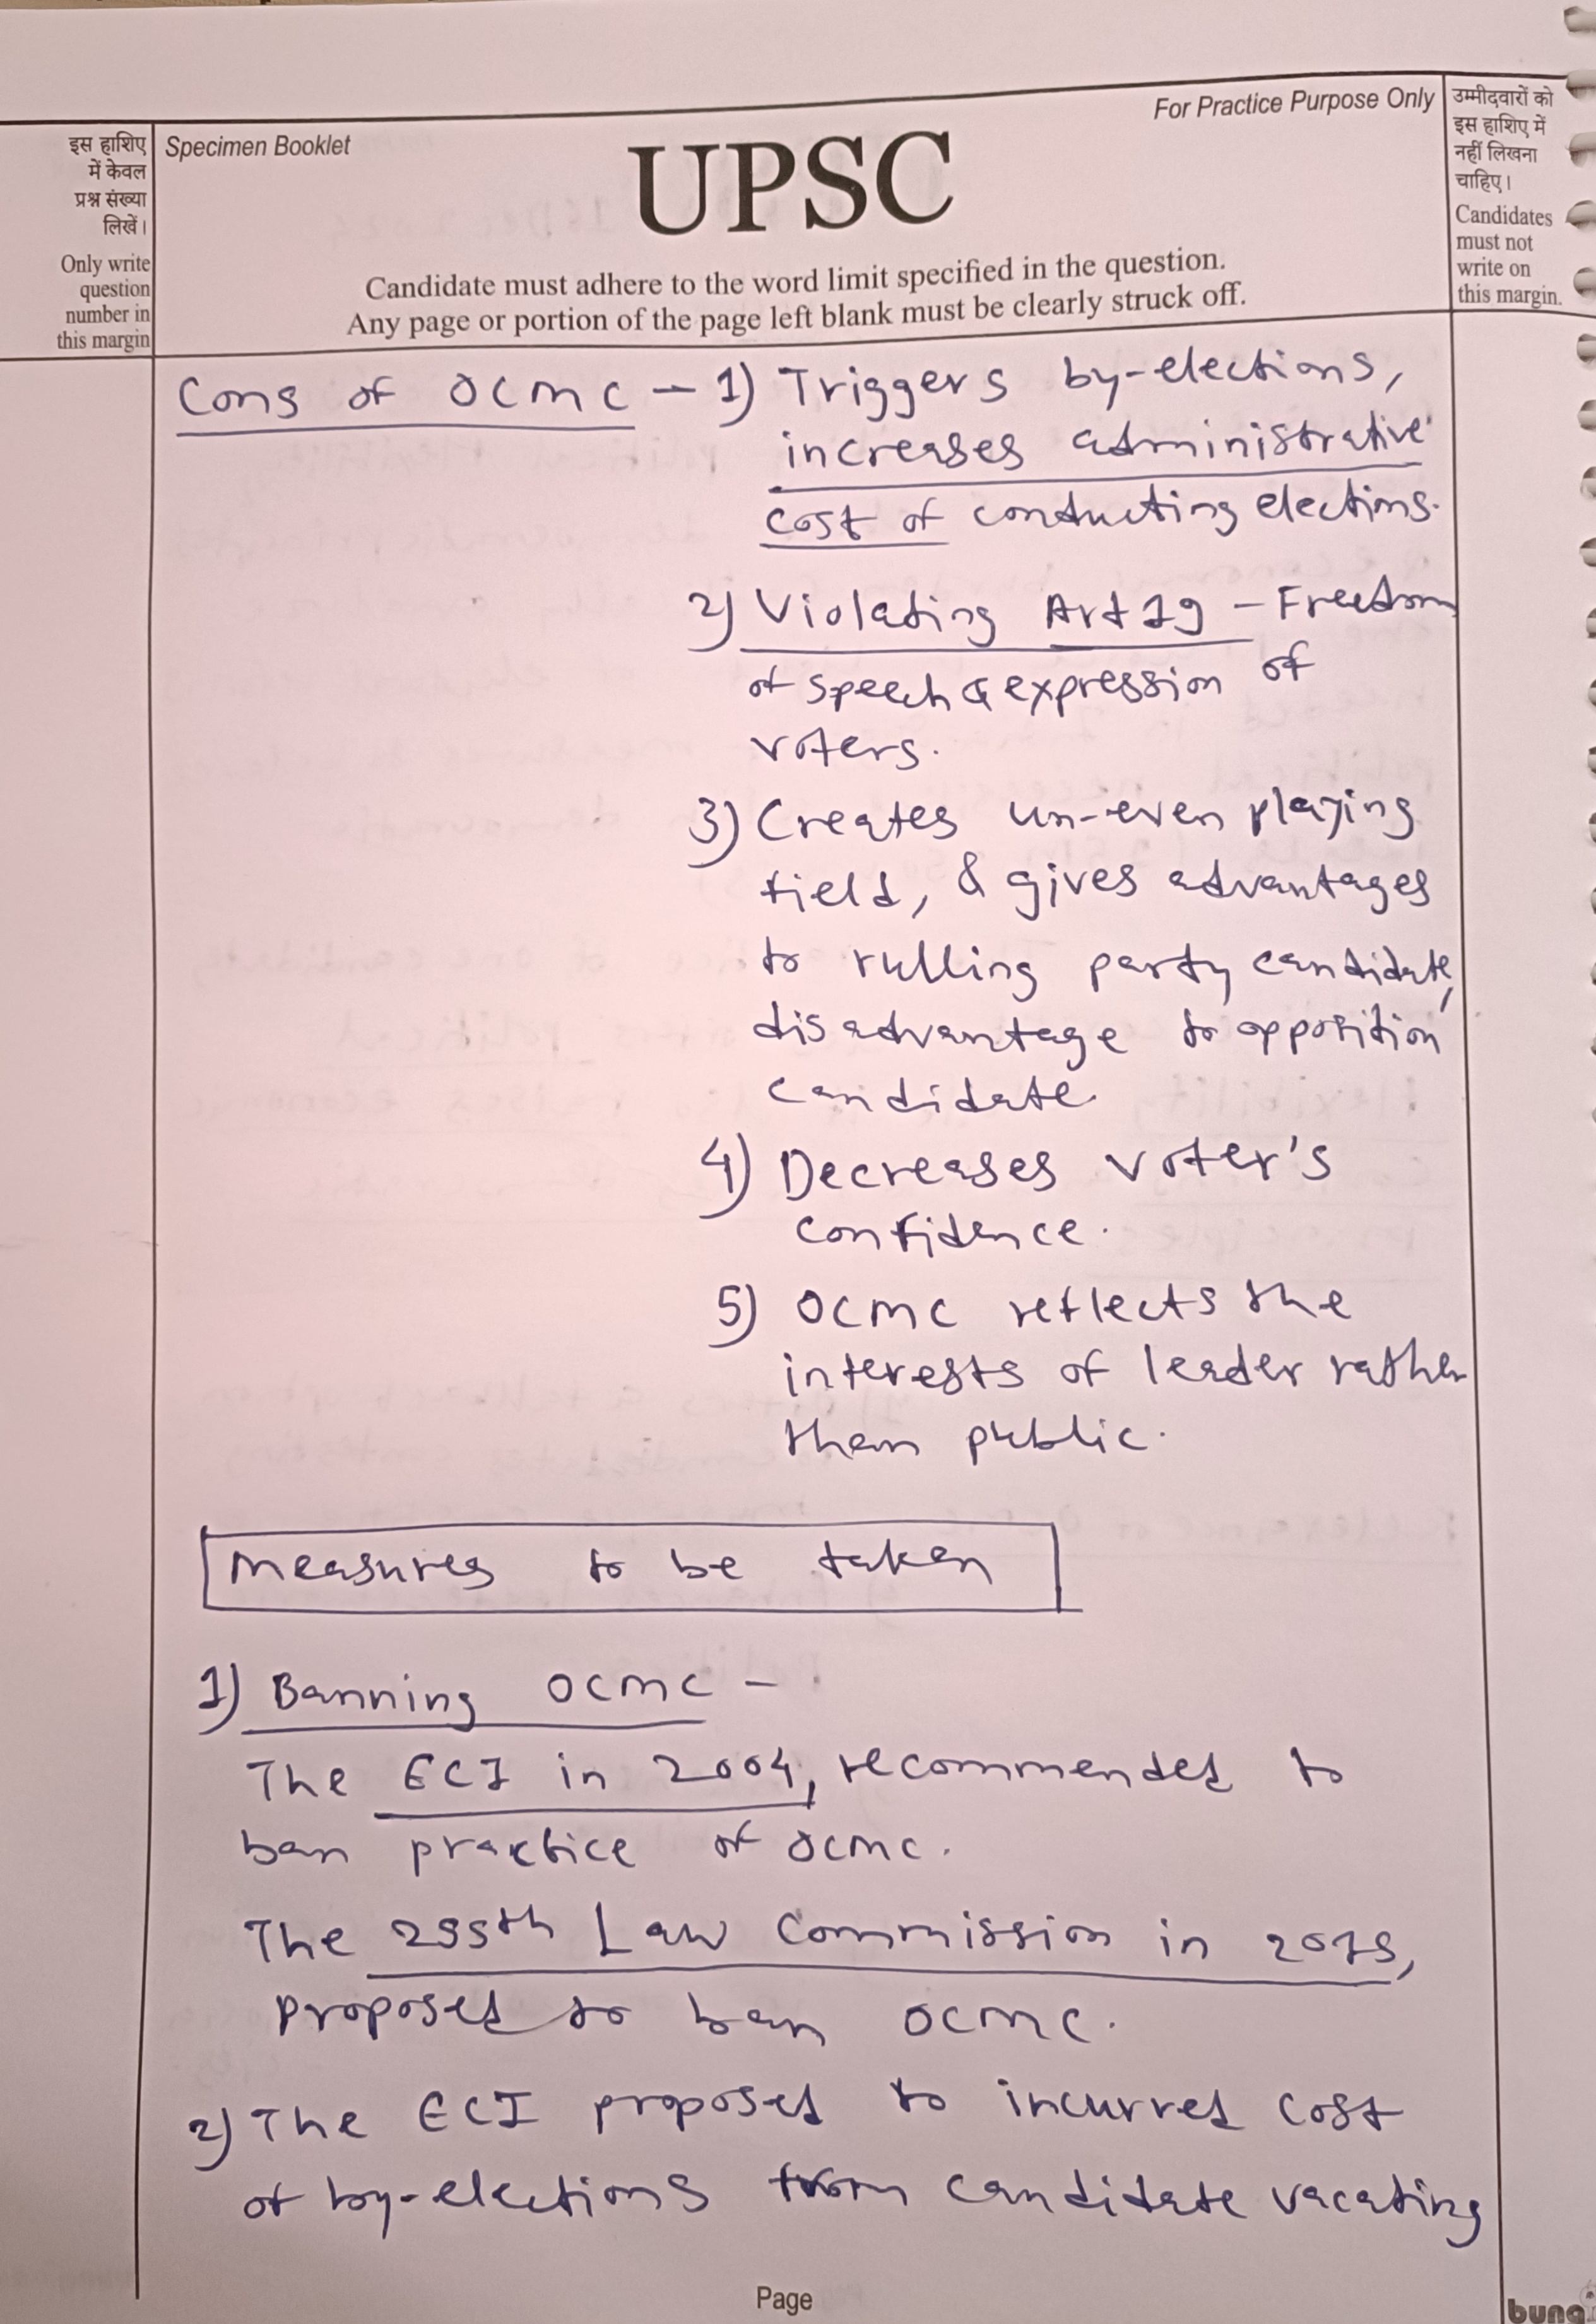 For Practice Purpose Only
इस हाशिए
में केवल
प्रश्न संख्या
लिखें।
Only write
question
number in
this margin
Specimen Booklet
UPSC
Candidate must adhere to the word limit specified in the question.
Any page or portion of the page left blank must be clearly struck off.
उम्मीदवारों को
इस हाशिए में
नहीं लिखना
चाहिए।
Candidates
must not
write on
this margin.
Cons of OCMC - 1) Triggers by-elections,
increases administrative
cost of conducting elections.
2) Violating Art 19 - Freedom
of speech & expression of
voters.
3) Creates un-even playing
field, & gives advantages
to rulling party candidate,
disadvantage to opposition
candidate.
4) Decreases voter's
confidence.
5) OCMC reflects the
interests of leader rather
than public.
Measures to be taken
1) Banning OCMC -
The ECI in 2004, recommended to
ban practice of OCMC.
The 255th Law Commission in 2015,
proposed to ban OCMC.
2) The ECI proposed to incurred cost
of by-elections from candidate vacating
Page